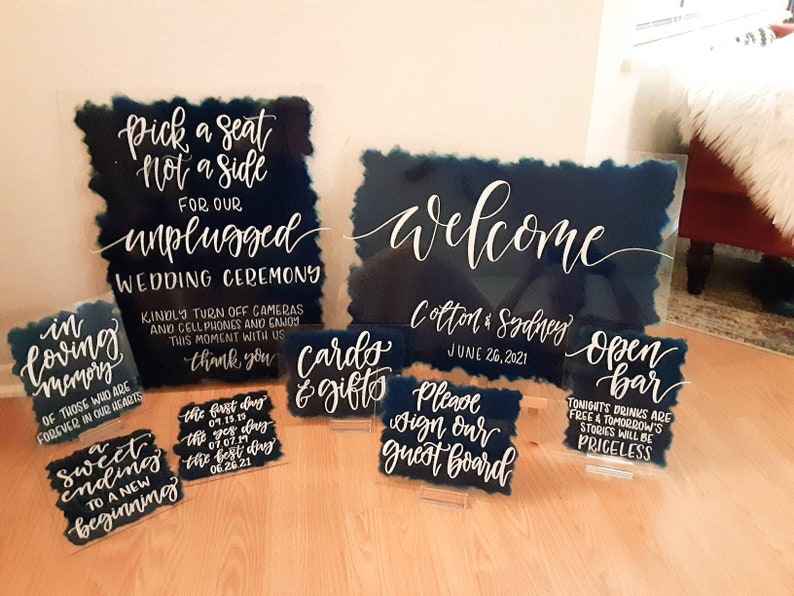 Pick a seat
Not a side
FOR OUR
unplugged
WEDDING CEREMONY
KINDLY TURN OFF CAMERAS
AND CELLPHONES AND ENJOY
THIS MOMENT WITH US
thank you
welcome
Colton & Sydney
JUNE 26, 2021
in
loving
memory
OF THOSE WHO ARE
FOREVER IN OUR HEARTS
cards
& gifts
open
bar
TONIGHT'S DRINKS ARE
FREE & TOMORROW'S
STORIES WILL BE
PRICELESS
a
sweet
ending
TO A NEW
beginning
the first day
09.13.13
the yes day
07.07.19
the best day
06.26.21
Please
sign our
guest board